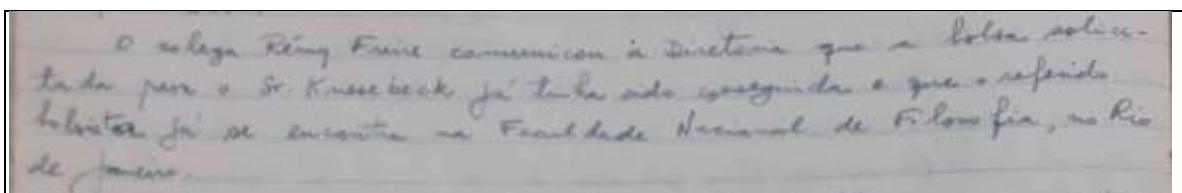 O colega Rémy Freire comunicou à Diretoria que a bolsa solici-
tada para o Sr. Knesebeck já tinha sido conseguida e que o referido
bolsista já se encontra na Faculdade Nacional de Filosofia, no Rio
de Janeiro.